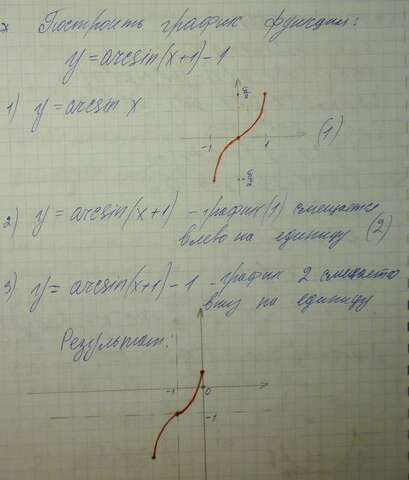 Построить график функции:
y = arcsin(x+1) - 1
1) y = arcsin x
π/2
-1 1 (1)
-π/2
2) y = arcsin(x+1) - график (1) смещается
влево на единицу (2)
3) y = arcsin(x+1) - 1 - график 2 смещается
вниз на единицу
Результат:
-1 0
-1